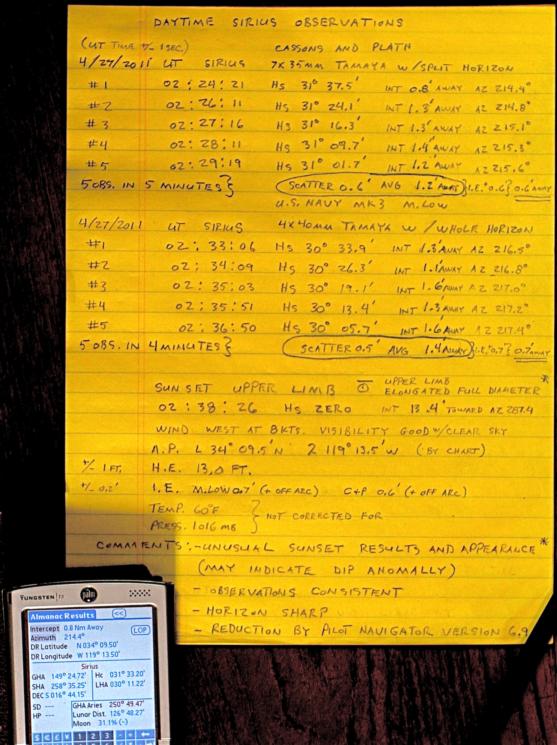 DAYTIME SIRIUS OBSERVATIONS
(UT TIME +/- 1 SEC.) CASSONS AND PLATH
4/27/2011 UT SIRIUS 7X35MM TAMAYA W/SPLIT HORIZON
#1 02:24:21 Hs 31° 37.5' INT 0.8' AWAY AZ 214.4°
#2 02:26:11 Hs 31° 24.1' INT 1.3' AWAY AZ 214.8°
#3 02:27:16 Hs 31° 16.3' INT 1.3' AWAY AZ 215.1°
#4 02:28:11 Hs 31° 09.7' INT 1.4' AWAY AZ 215.3°
#5 02:29:19 Hs 31° 01.7' INT 1.2' AWAY AZ 215.6°
5 OBS. IN 5 MINUTES } SCATTER 0.6' AVG 1.2' AWAY } I.E. 0.6 } 0.6' AWAY
U.S. NAVY MK3 M.LOW
4/27/2011 UT SIRIUS 4X40MM TAMAYA W/WHOLE HORIZON
#1 02:33:06 Hs 30° 33.9' INT 1.3' AWAY AZ 216.5°
#2 02:34:09 Hs 30° 26.3' INT 1.1' AWAY AZ 216.8°
#3 02:35:03 Hs 30° 19.1' INT 1.6' AWAY AZ 217.0°
#4 02:35:51 Hs 30° 13.4' INT 1.3' AWAY AZ 217.2°
#5 02:36:50 Hs 30° 05.7' INT 1.6' AWAY AZ 217.4°
5 OBS. IN 4 MINUTES } SCATTER 0.5' AVG 1.4' AWAY } I.E. 0.7' } 0.7' AWAY
SUN SET UPPER LIMB UPPER LIMB ELONGATED FULL DIAMETER *
02:38:26 Hs ZERO INT 13.4' TOWARD AZ 287.4
WIND WEST AT 8 KTS. VISIBILITY GOOD W/CLEAR SKY
A.P. L 34° 09.5' N 119° 13.5' W (BY CHART)
+/- 1 FT. H.E. 13.0 FT.
+/- 0.2' I.E. M.LOW 0.7' (+ OFF ARC) C+P 0.6' (+ OFF ARC)
TEMP. 60°F
PRESS. 1016 MB } NOT CORRECTED FOR
COMMENTS: - UNUSUAL SUNSET RESULTS AND APPEARANCE *
(MAY INDICATE DIP ANOMALLY)
- OBSERVATIONS CONSISTENT
- HORIZON SHARP
- REDUCTION BY PILOT NAVIGATOR VERSION 6.9
TUNGSTEN palm
Almanac Results <<
Intercept 0.8 Nm Away
Azimuth 214.4° LOP
DR Latitude N 034° 09.50'
DR Longitude W 119° 13.50'
Sirius
GHA 149° 24.72' Hc 031° 33.20'
SHA 258° 35.25' LHA 030° 11.22'
DEC S 016° 44.15'
SD --- GHA Aries 250° 49.47'
HP --- Lunar Dist. 126° 48.27'
Moon 31.1% (-)
1 2 3